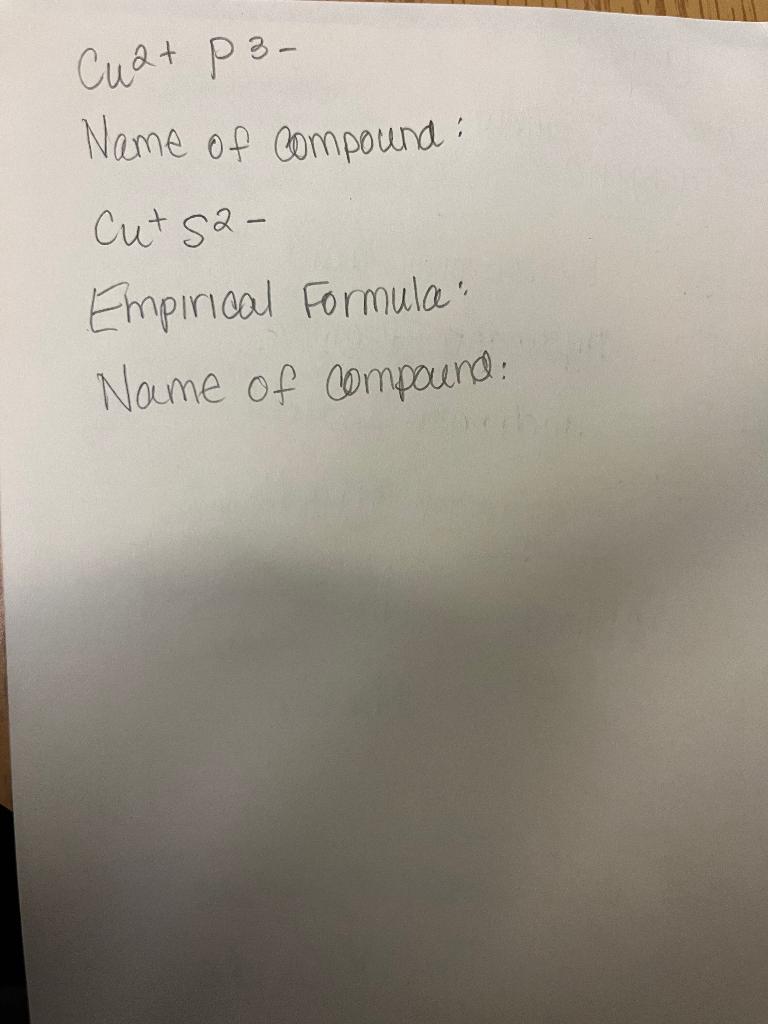 Cu2+ P3-
Name of compound:
Cu+ S2-
Empirical Formula:
Name of compound: